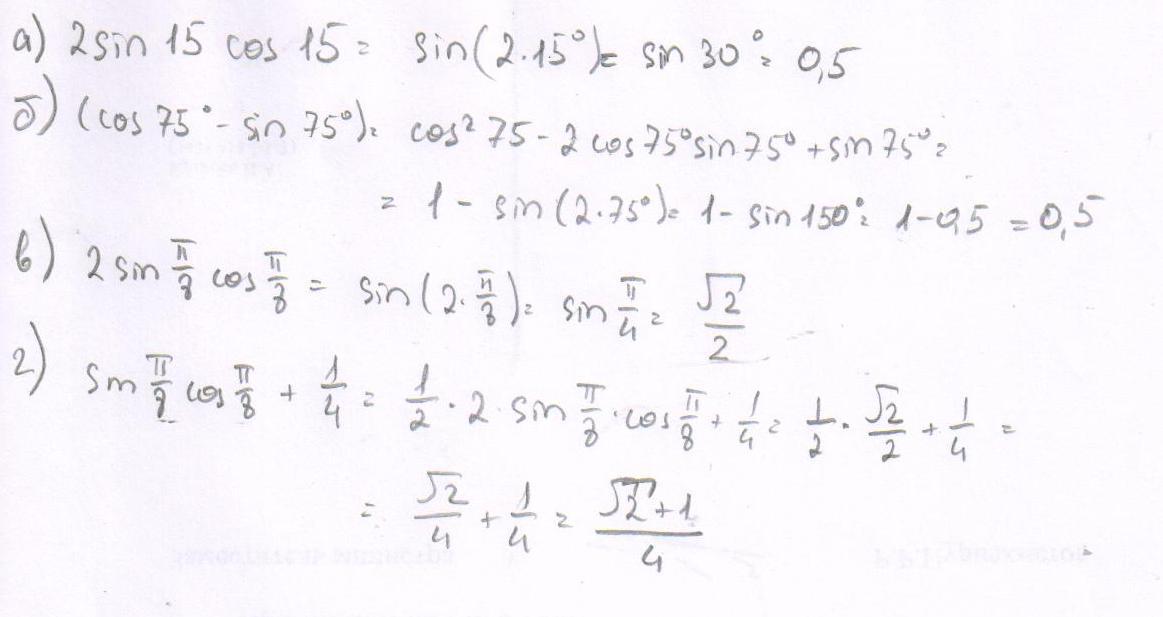 а) 2 sin 15 cos 15 = sin(2·15°) = sin 30° = 0,5
б) (cos 75° - sin 75°) = cos² 75 - 2 cos 75° sin 75° + sin 75° =
= 1 - sin(2·75°) = 1 - sin 150° = 1 - 0,5 = 0,5
в) 2 sin π/8 cos π/8 = sin(2·π/8) = sin π/4 = √2/2
г) sin π/8 cos π/8 + 1/4 = 1/2 · 2 · sin π/8 · cos π/8 + 1/4 = 1/2 · √2/2 + 1/4 =
= √2/4 + 1/4 = (√2+1)/4